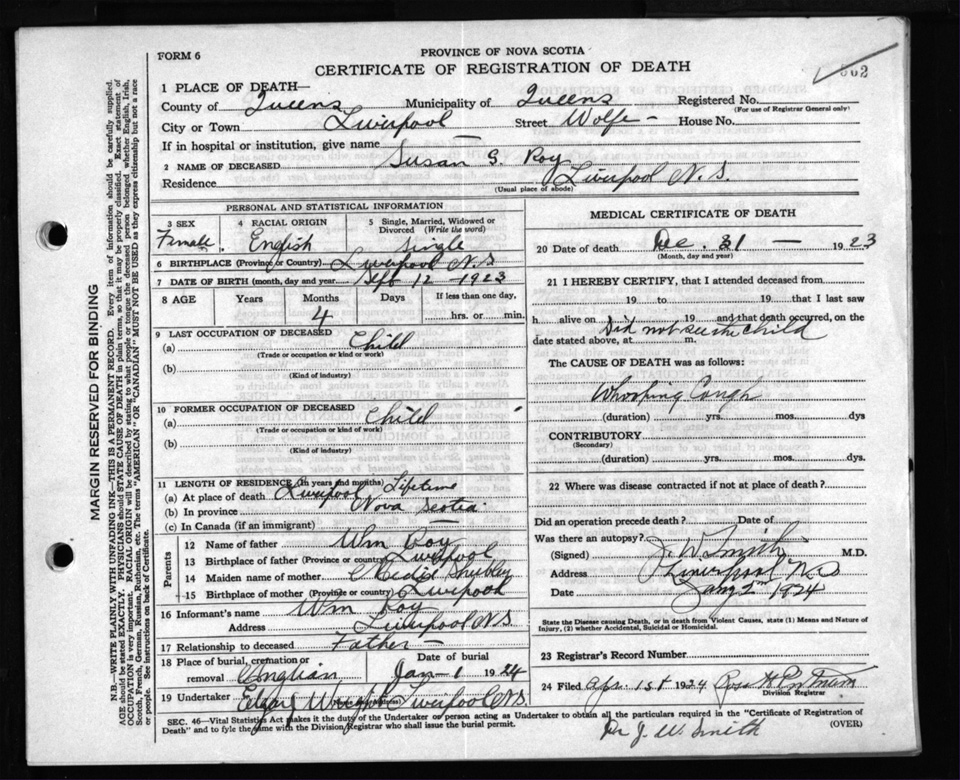 FORM 6
PROVINCE OF NOVA SCOTIA
CERTIFICATE OF REGISTRATION OF DEATH
502
1 PLACE OF DEATH—
County of Queens Municipality of Queens Registered No.
(For use of Registrar General only)
City or Town Liverpool Street Wolfe – House No.
If in hospital or institution, give name —
2 NAME OF DECEASED Susan G. Roy
Residence Liverpool N. S.
(Usual place of abode)
PERSONAL AND STATISTICAL INFORMATION
3 SEX 4 RACIAL ORIGIN 5 Single, Married, Widowed or Divorced (Write the word)
Female. English Single
6 BIRTHPLACE (Province or Country) Liverpool N.S
7 DATE OF BIRTH (month, day and year) Sept 12 – 1923
8 AGE Years Months Days If less than one day,
4 hrs. or min.
9 LAST OCCUPATION OF DECEASED
(a) Child
(Trade or occupation or kind or work)
(b)
(Kind of industry)
10 FORMER OCCUPATION OF DECEASED
(a) Child
(Trade or occupation or kind of work)
(b)
(Kind of industry)
11 LENGTH OF RESIDENCE (In years and months)
(a) At place of death Liverpool Lifetime
(b) In province Nova Scotia
(c) In Canada (if an immigrant) —
Parents
12 Name of father Wm Roy
13 Birthplace of father (Province or country) Liverpool
14 Maiden name of mother
15 Birthplace of mother (Province or country) Liverpool
16 Informant's name Wm Roy
Address Liverpool N.S.
17 Relationship to deceased Father –
18 Place of burial, cremation or removal Date of burial
Jan – 1 1924
19 Undertaker Edgar Wright Liverpool N.S.
(Address)
MEDICAL CERTIFICATE OF DEATH
20 Date of death Dec. 31 — 1923
(Month, day and year)
21 I HEREBY CERTIFY, that I attended deceased from
19 to 19 that I last saw
h alive on 19 and that death occurred, on
Did not see the child
date stated above, at m.
The CAUSE OF DEATH was as follows:
Whooping Cough
(duration) yrs. mos. dys
CONTRIBUTORY
(Secondary)
(duration) yrs. mos. dys.
22 Where was disease contracted if not at place of death?
Did an operation precede death? Date of
Was there an autopsy?
(Signed) J. W. Smith M.D.
Address Liverpool N.S
Date Jany 2nd 1924
State the Disease causing Death, or in death from Violent Causes, state (1) Means and Nature of Injury, (2) whether Accidental, Suicidal or Homicidal.
23 Registrar's Record Number
24 Filed Apr. 1st 1924
Division Registrar
SEC. 46—Vital Statistics Act makes it the duty of the Undertaker or person acting as Undertaker to obtain all the particulars required in the "Certificate of Registration of
Death" and to fyle the same with the Division Registrar who shall issue the burial permit.
(OVER)
Dr J. W. Smith
MARGIN RESERVED FOR BINDING
N.B.—WRITE PLAINLY WITH UNFADING INK—THIS IS A PERMANENT RECORD. Every item of information should be carefully supplied.
AGE should be stated EXACTLY. PHYSICIANS should STATE CAUSE OF DEATH in plain terms, so that it may be properly classified. Exact statement of
OCCUPATION is very important. RACIAL ORIGIN will be described by stating to what people or tongue the deceased person belonged, whether English, Irish,
Scotch, French, German, Russian, Ruthenian, etc. The terms "AMERICAN" OR "CANADIAN" MUST NOT BE USED as they express citizenship but not a race
or people. See instructions on back of Certificate.